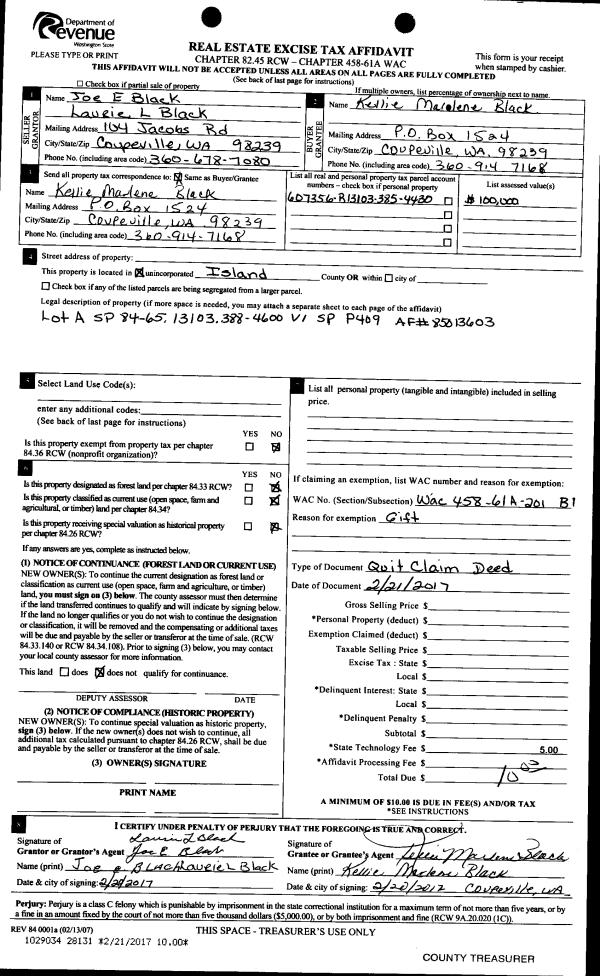 Department of
Revenue
Washington State
PLEASE TYPE OR PRINT
REAL ESTATE EXCISE TAX AFFIDAVIT
CHAPTER 82.45 RCW – CHAPTER 458-61A WAC
This form is your receipt
when stamped by cashier.
THIS AFFIDAVIT WILL NOT BE ACCEPTED UNLESS ALL AREAS ON ALL PAGES ARE FULLY COMPLETED
(See back of last page for instructions)
Check box if partial sale of property
If multiple owners, list percentage of ownership next to name.
1
SELLER
GRANTOR
Name Joe E Black
Laurie L Black
Mailing Address 164 Jacobs Rd
City/State/Zip Coupeville, WA 98239
Phone No. (including area code) 360-678-7080
2
BUYER
GRANTEE
Name Kellie Marlene Black
Mailing Address P.O. Box 1524
City/State/Zip Coupeville, WA, 98239
Phone No. (including area code) 360-914 7168
3
Send all property tax correspondence to: Same as Buyer/Grantee
Name Kellie Marlene Black
Mailing Address P.O. Box 1524
City/State/Zip Coupeville, WA 98239
Phone No. (including area code) 360-914-7168
List all real and personal property tax parcel account
numbers – check box if personal property
607356-R13103-385-4430
List assessed value(s)
$ 100,000
4
Street address of property:
This property is located in unincorporated Island County OR within city of
Check box if any of the listed parcels are being segregated from a larger parcel.
Legal description of property (if more space is needed, you may attach a separate sheet to each page of the affidavit)
Lot A SP 84-65, 13103.388-4600 V1 SP P409 AF# 85013603
5
Select Land Use Code(s):
enter any additional codes:
(See back of last page for instructions)
YES NO
Is this property exempt from property tax per chapter
84.36 RCW (nonprofit organization)?
6
YES NO
Is this property designated as forest land per chapter 84.33 RCW?
Is this property classified as current use (open space, farm and
agricultural, or timber) land per chapter 84.34?
Is this property receiving special valuation as historical property
per chapter 84.26 RCW?
If any answers are yes, complete as instructed below.
(1) NOTICE OF CONTINUANCE (FOREST LAND OR CURRENT USE)
NEW OWNER(S): To continue the current designation as forest land or
classification as current use (open space, farm and agriculture, or timber)
land, you must sign on (3) below. The county assessor must then determine
if the land transferred continues to qualify and will indicate by signing below.
If the land no longer qualifies or you do not wish to continue the designation
or classification, it will be removed and the compensating or additional taxes
will be due and payable by the seller or transferor at the time of sale. (RCW
84.33.140 or RCW 84.34.108). Prior to signing (3) below, you may contact
your local county assessor for more information.
This land does does not qualify for continuance.
DEPUTY ASSESSOR DATE
(2) NOTICE OF COMPLIANCE (HISTORIC PROPERTY)
NEW OWNER(S): To continue special valuation as historic property,
sign (3) below. If the new owner(s) does not wish to continue, all
additional tax calculated pursuant to chapter 84.26 RCW, shall be due
and payable by the seller or transferor at the time of sale.
(3) OWNER(S) SIGNATURE
PRINT NAME
7
List all personal property (tangible and intangible) included in selling
price.
If claiming an exemption, list WAC number and reason for exemption:
WAC No. (Section/Subsection) Wac 458-61A-201 B1
Reason for exemption Gift
Type of Document Quit Claim Deed
Date of Document 2/21/2017
Gross Selling Price $
*Personal Property (deduct) $
Exemption Claimed (deduct) $
Taxable Selling Price $
Excise Tax : State $
Local $
*Delinquent Interest: State $
Local $
*Delinquent Penalty $
Subtotal $
*State Technology Fee $ 5.00
*Affidavit Processing Fee $
Total Due $ 10 00
A MINIMUM OF $10.00 IS DUE IN FEE(S) AND/OR TAX
*SEE INSTRUCTIONS
8
I CERTIFY UNDER PENALTY OF PERJURY THAT THE FOREGOING IS TRUE AND CORRECT.
Signature of
Grantor or Grantor's Agent Laurie L Black
Joe E Black
Name (print) Joe e BLACK Laurie L Black
Date & city of signing: 2/21/2017
Signature of
Grantee or Grantee's Agent Kellie Marlene Black
Name (print) Kellie Marlene Black
Date & city of signing: 2/20/2017 Coupeville, WA
Perjury: Perjury is a class C felony which is punishable by imprisonment in the state correctional institution for a maximum term of not more than five years, or by
a fine in an amount fixed by the court of not more than five thousand dollars ($5,000.00), or by both imprisonment and fine (RCW 9A.20.020 (1C)).
REV 84 0001a (02/13/07)
THIS SPACE - TREASURER'S USE ONLY
1029034 28131 *2/21/2017 10.00*
COUNTY TREASURER